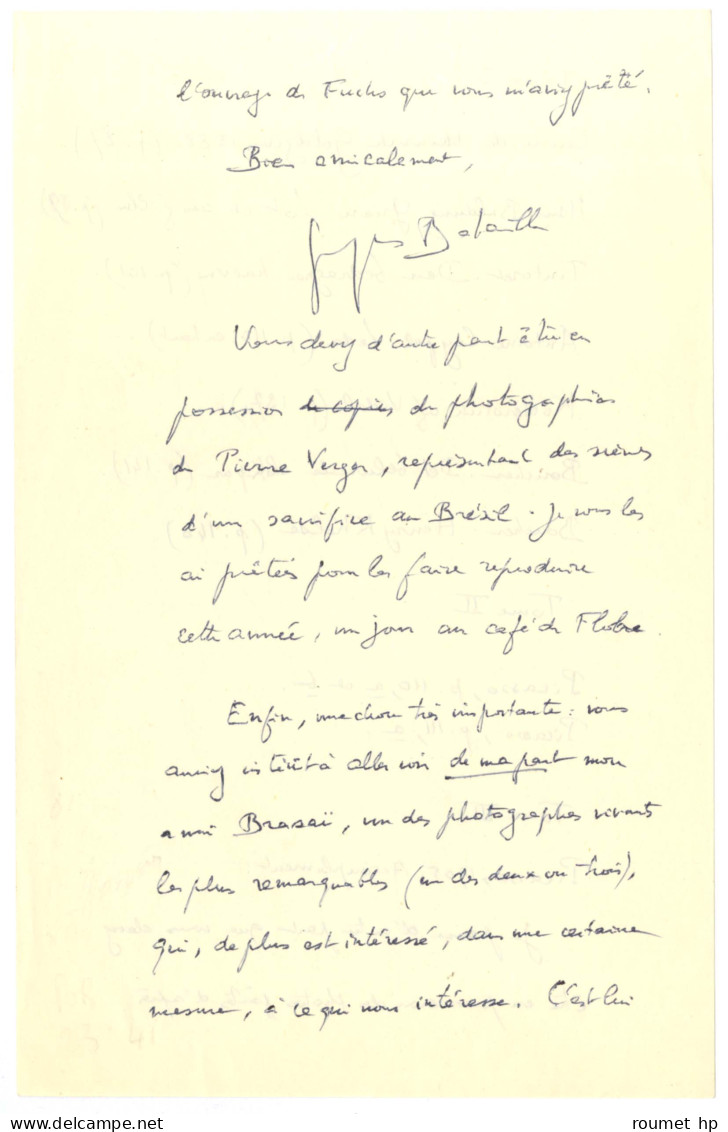 l'ouvrage de Fuchs que vous m'aviez prêté.
Bien amicalement,
Georges Bataille
Vous devez d'autre part être en
possession de copies de photographies
de Pierre Verger, représentant des scènes
d'un sacrifice au Brésil. Je vous les
ai prêtées pour les faire reproduire
cette année, un jour au café de Flore
Enfin, une chose très importante : vous
auriez intérêt à aller voir de ma part mon
ami Brassaï, un des photographes vivants
les plus remarquables (un des deux ou trois),
qui, de plus est intéressé, dans une certaine
mesure, à ce qui nous intéresse. C'est lui
www.delcampe.net
roumet hp